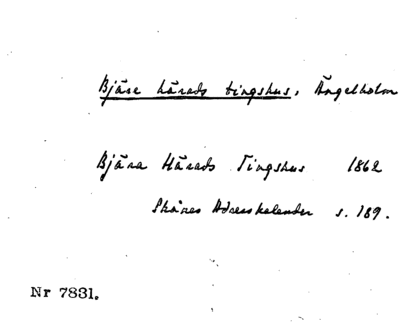 Bjäre härads tingshus, Ängelholm
Bjära Härads Tingshus 1862
Skånes Adresskalender s. 189.
Nr 7831.